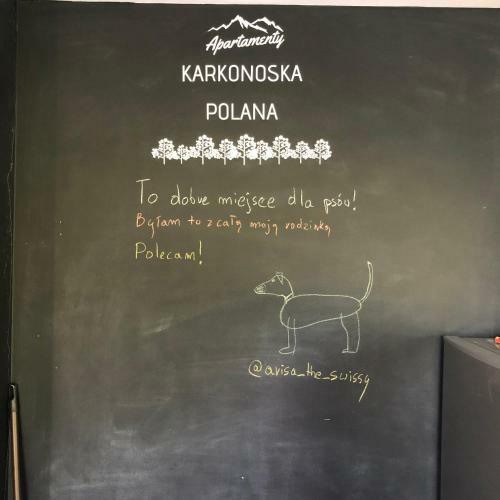 Apartamenty
KARKONOSKA
POLANA
To dobre miejsce dla psów!
Byłam tu z całą moją rodzinką
Polecam!
@arisa_the_swissy